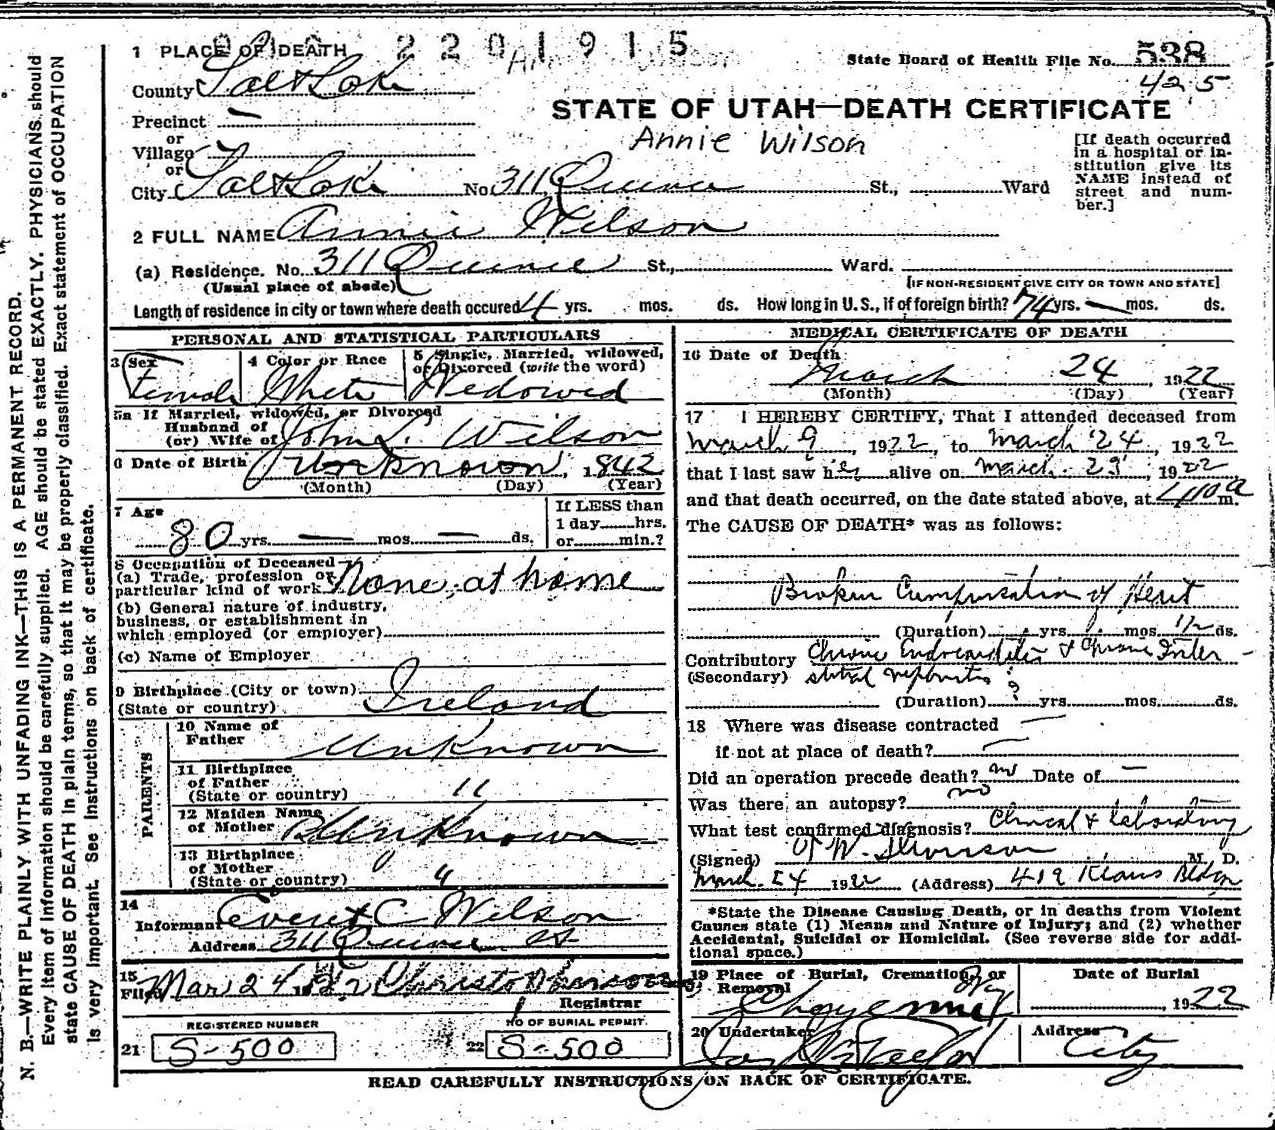 2201915
1 PLACE OF DEATH
State Board of Health File No. 538
425
County Salt Lake
STATE OF UTAH—DEATH CERTIFICATE
Annie Wilson
Precinct —
or
Village
or
City Salt Lake No. 311 Quince St., Ward
[If death occurred
in a hospital or in-
stitution give its
NAME instead of
street and num-
ber.]
2 FULL NAME Annie Wilson
(a) Residence. No. 311 Quince St., Ward.
(Usual place of abode) [IF NON-RESIDENT GIVE CITY OR TOWN AND STATE]
Length of residence in city or town where death occured 4 yrs. mos. ds. How long in U. S., if of foreign birth? 74 yrs. — mos. ds.
PERSONAL AND STATISTICAL PARTICULARS
3 Sex
Female
4 Color or Race
White
5 Single, Married, widowed,
or Divorced (write the word)
Widowed
5a If Married, widowed, or Divorced
Husband of
(or) Wife of John L. Wilson
6 Date of Birth Unknown, 1842
(Month) (Day) (Year)
7 Age
80 yrs. — mos. — ds.
If LESS than
1 day hrs.
or min.?
8 Occupation of Deceased
(a) Trade, profession or
particular kind of work None, at home
(b) General nature of industry,
business, or establishment in
which employed (or employer)
(c) Name of Employer
9 Birthplace (City or town)
(State or country) Ireland
PARENTS
10 Name of
Father Unknown
11 Birthplace
of Father
(State or country) "
12 Maiden Name
of Mother Unknown
13 Birthplace
of Mother
(State or country) "
14
Informant Everett C Wilson
Address 311 Quince St
15
Filed Mar 24, 1922
Registrar
REGISTERED NUMBER
21 S-500
NO OF BURIAL PERMIT
22 S-500
MEDICAL CERTIFICATE OF DEATH
16 Date of Death
March 24, 1922
(Month) (Day) (Year)
17 I HEREBY CERTIFY, That I attended deceased from
March 9, 1922, to March 24, 1922
that I last saw her alive on March 23, 1922
and that death occurred, on the date stated above, at m.
The CAUSE OF DEATH* was as follows:
Broken Compensation of Heart
(Duration) yrs. mos. 1/2 ds.
Contributory Chronic Endocarditis & Chronic Inter-
(Secondary) stitial nephritis
(Duration) ? yrs. mos. ds.
18 Where was disease contracted —
if not at place of death? —
Did an operation precede death? no Date of —
Was there an autopsy? no
What test confirmed diagnosis? Clinical & Laboratory
(Signed) M. D.
March 24 1922 (Address) 412 Bldg
*State the Disease Causing Death, or in deaths from Violent
Causes state (1) Means and Nature of Injury; and (2) whether
Accidental, Suicidal or Homicidal. (See reverse side for addi-
tional space.)
19 Place of Burial, Cremation, or
Removal
Date of Burial
1922
20 Undertaker
Address
City
READ CAREFULLY INSTRUCTIONS ON BACK OF CERTIFICATE.
N. B.—WRITE PLAINLY WITH UNFADING INK—THIS IS A PERMANENT RECORD.
Every item of information should be carefully supplied. AGE should be stated EXACTLY. PHYSICIANS should
state CAUSE OF DEATH in plain terms, so that it may be properly classified. Exact statement of OCCUPATION
is very important. See Instructions on back of certificate.